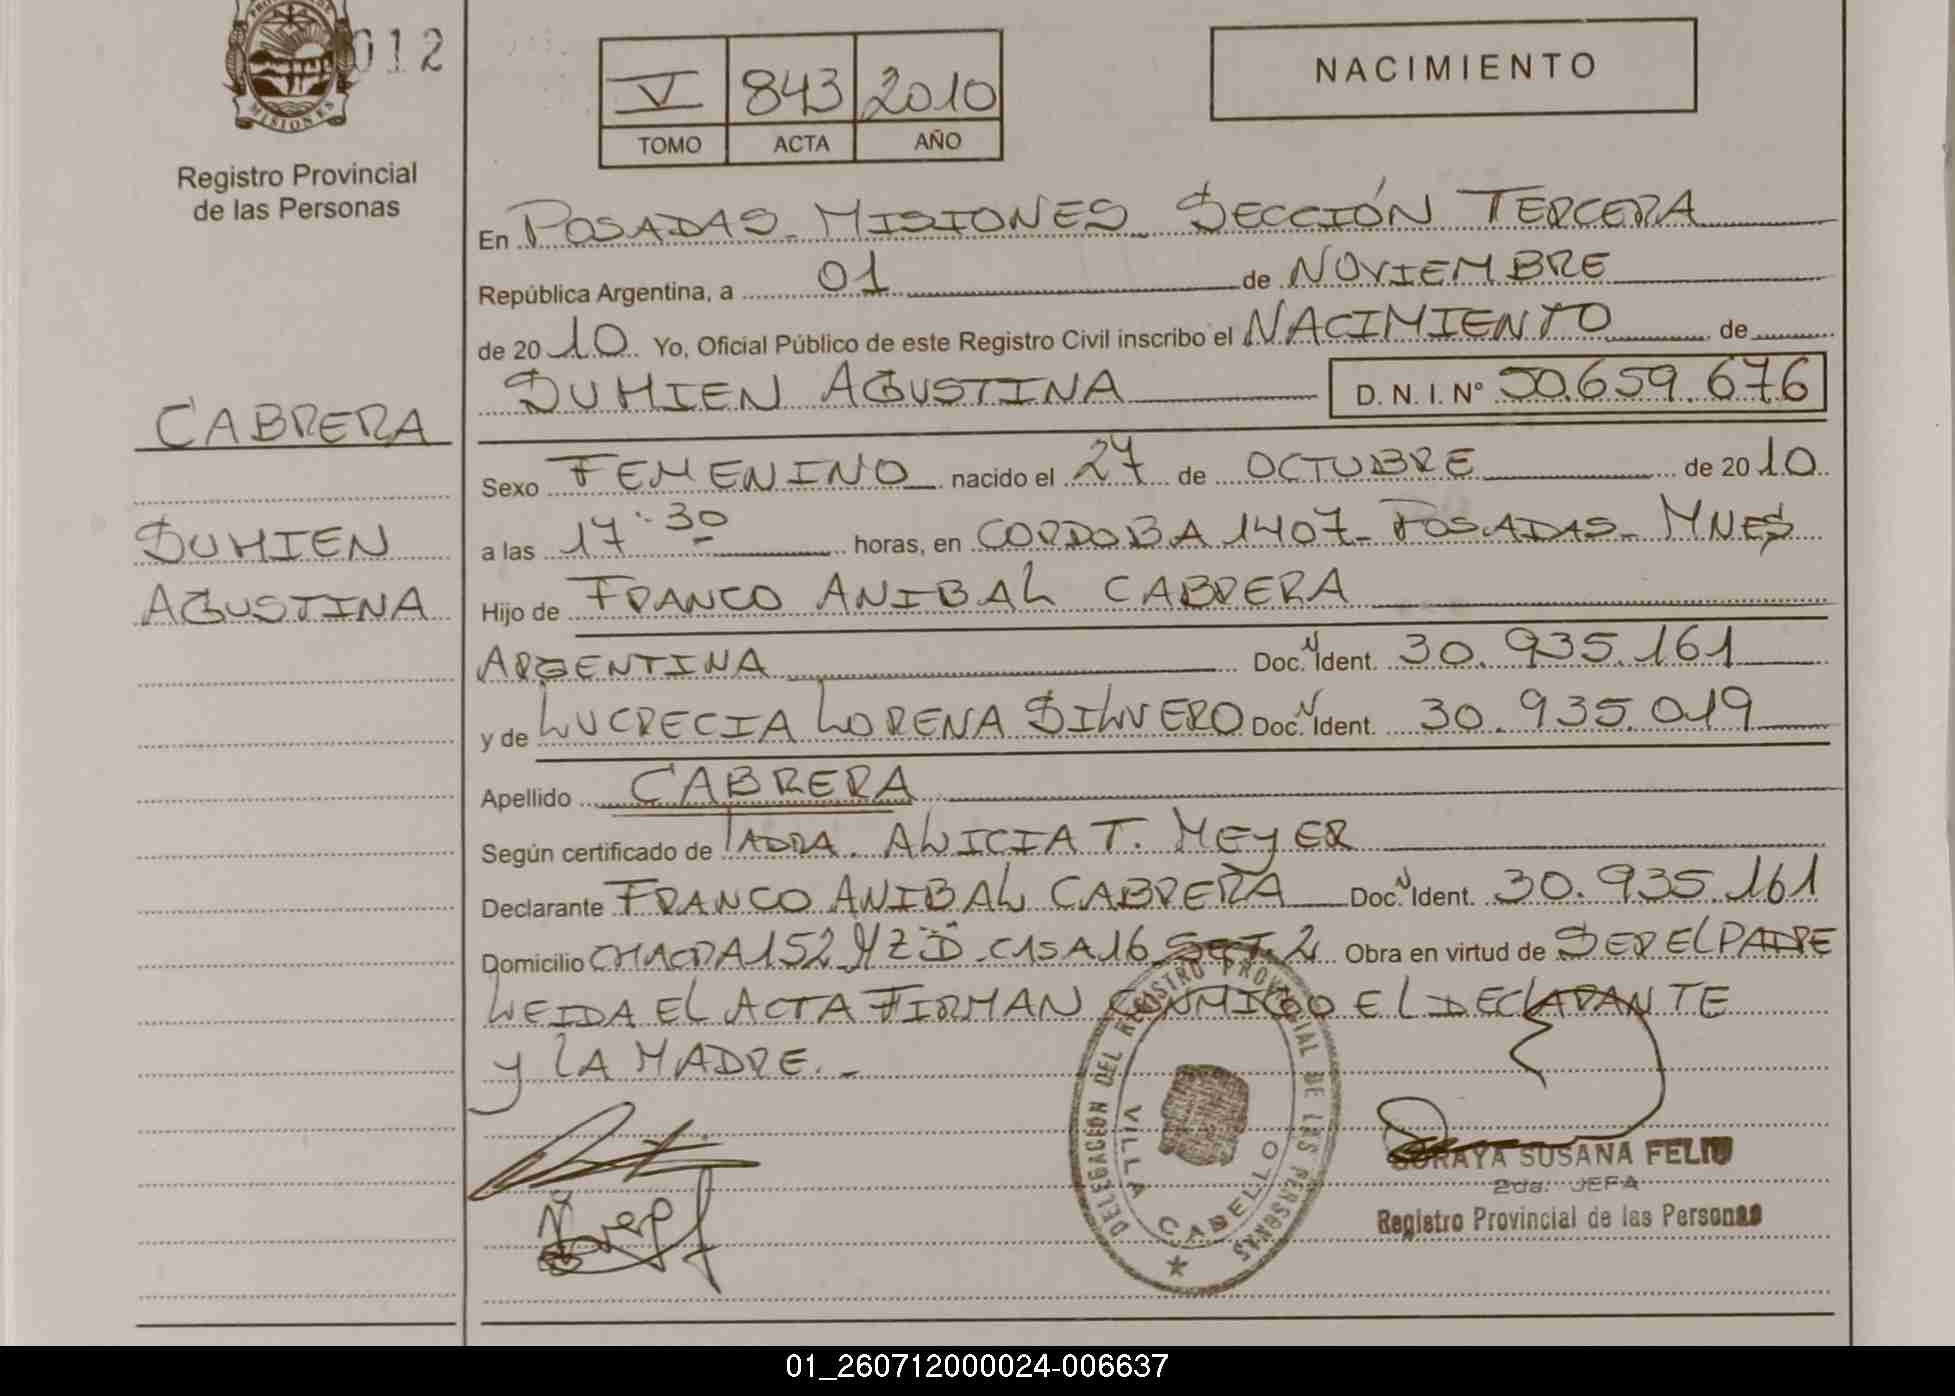 PROVINCIA DE
MISIONES
012
Registro Provincial
de las Personas
V 843 2010
TOMO ACTA AÑO
NACIMIENTO
En POSADAS - MISIONES - SECCIÓN TERCERA
República Argentina, a 01 de NOVIEMBRE
de 20 10 Yo, Oficial Público de este Registro Civil inscribo el NACIMIENTO de
SUMIEN AGUSTINA D. N. I. Nº 50.659.676
CABRERA
SUMIEN
AGUSTINA
Sexo FEMENINO nacido el 27 de OCTUBRE de 20 10
a las 17:30 horas, en CORDOBA 1407 - POSADAS - MNES
Hijo de FRANCO ANIBAL CABRERA
ARGENTINA Doc. N Ident. 30.935.161
y de LUCRECIA LORENA SILVERO Doc. N Ident. 30.935.019
Apellido CABRERA
Según certificado de ALICIA T. MEYER
Declarante FRANCO ANIBAL CABRERA Doc. N Ident. 30.935.161
Domicilio CHACRA 152 MZ D C15A16 SET. 2 Obra en virtud de SER EL PADRE
LEIDA EL ACTA FIRMAN CONMIGO EL DECLARANTE
Y LA MADRE. -
DELEGACION DEL REGISTRO PROVINCIAL DE LAS PERSONAS
VILLA CABELLO
SORAYA SUSANA FELIU
2da. JEFA
Registro Provincial de las Personas
01_260712000024-006637